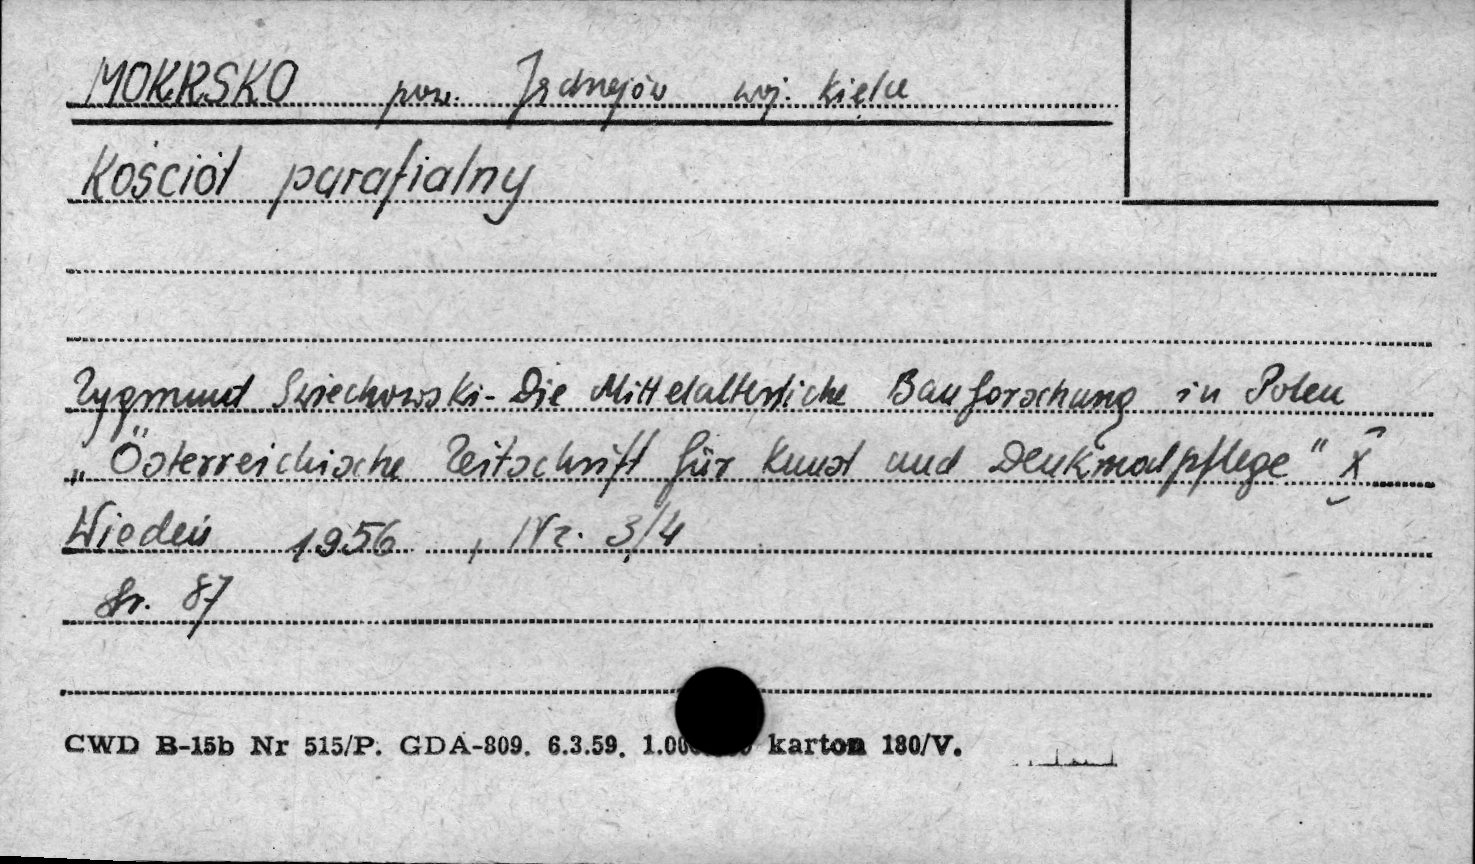 MOKRSKO pow. Jędrzejów woj. Kielce
Kościół parafialny
Zygmund Swiechowski - Die Mittelalterliche Bauforschung in Polen
„Österreichische Zeitschrift für Kunst und Denkmalpflege" X
Wiedeń 1956, Nr. 3/4
str. 87
CWD B-15b Nr 515/P. GDA-809. 6.3.59. karton 180/V.